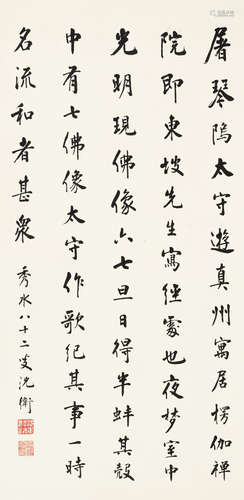 屠琴鳴太守遊真州寓居楞伽禪
院即東坡先生寫經處也夜夢室中
光明現佛像六七旦日得半蚌其殼
中有七佛像太守作歌紀其事一時
名流和者甚眾
秀水八十二叟沈衛